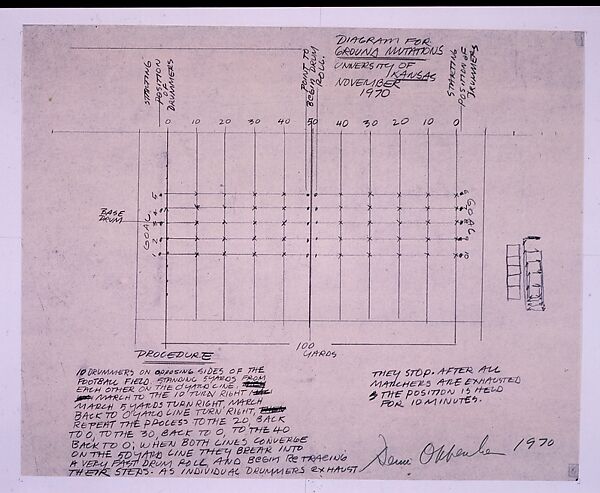 DIAGRAM FOR
GROUND MUTATIONS
UNIVERSITY OF
KANSAS
NOVEMBER
1970
STARTING
POSITION
OF
DRUMMERS
POINT TO
BEGIN DRUM
ROLL.
STARTING
POSITION OF
DRUMMERS
0 10 20 30 40 50 40 30 20 10 0
BASE
DRUM
GOAL
5
4
3
2
1
GOAL
6
7
8
9
10
100
YARDS
PROCEDURE
10 DRUMMERS ON OPPOSING SIDES OF THE
FOOTBALL FIELD. STANDING 5 YARDS FROM
EACH OTHER ON THE 0 YARD LINE.
MARCH TO THE 10 TURN RIGHT
MARCH 5 YARDS TURN RIGHT, MARCH
BACK TO 0 YARD LINE TURN RIGHT,
REPEAT THE PROCESS TO THE 20, BACK
TO 0, TO THE 30, BACK TO 0, TO THE 40
BACK TO 0; WHEN BOTH LINES CONVERGE
ON THE 50 YARD LINE THEY BREAK INTO
A VERY FAST DRUM ROLL AND BEGIN RETRACING
THEIR STEPS. AS INDIVIDUAL DRUMMERS EXHAUST
THEY STOP. AFTER ALL
MARCHERS ARE EXHAUSTED
THE POSITION IS HELD
FOR 10 MINUTES.
Dennis Oppenheim 1970